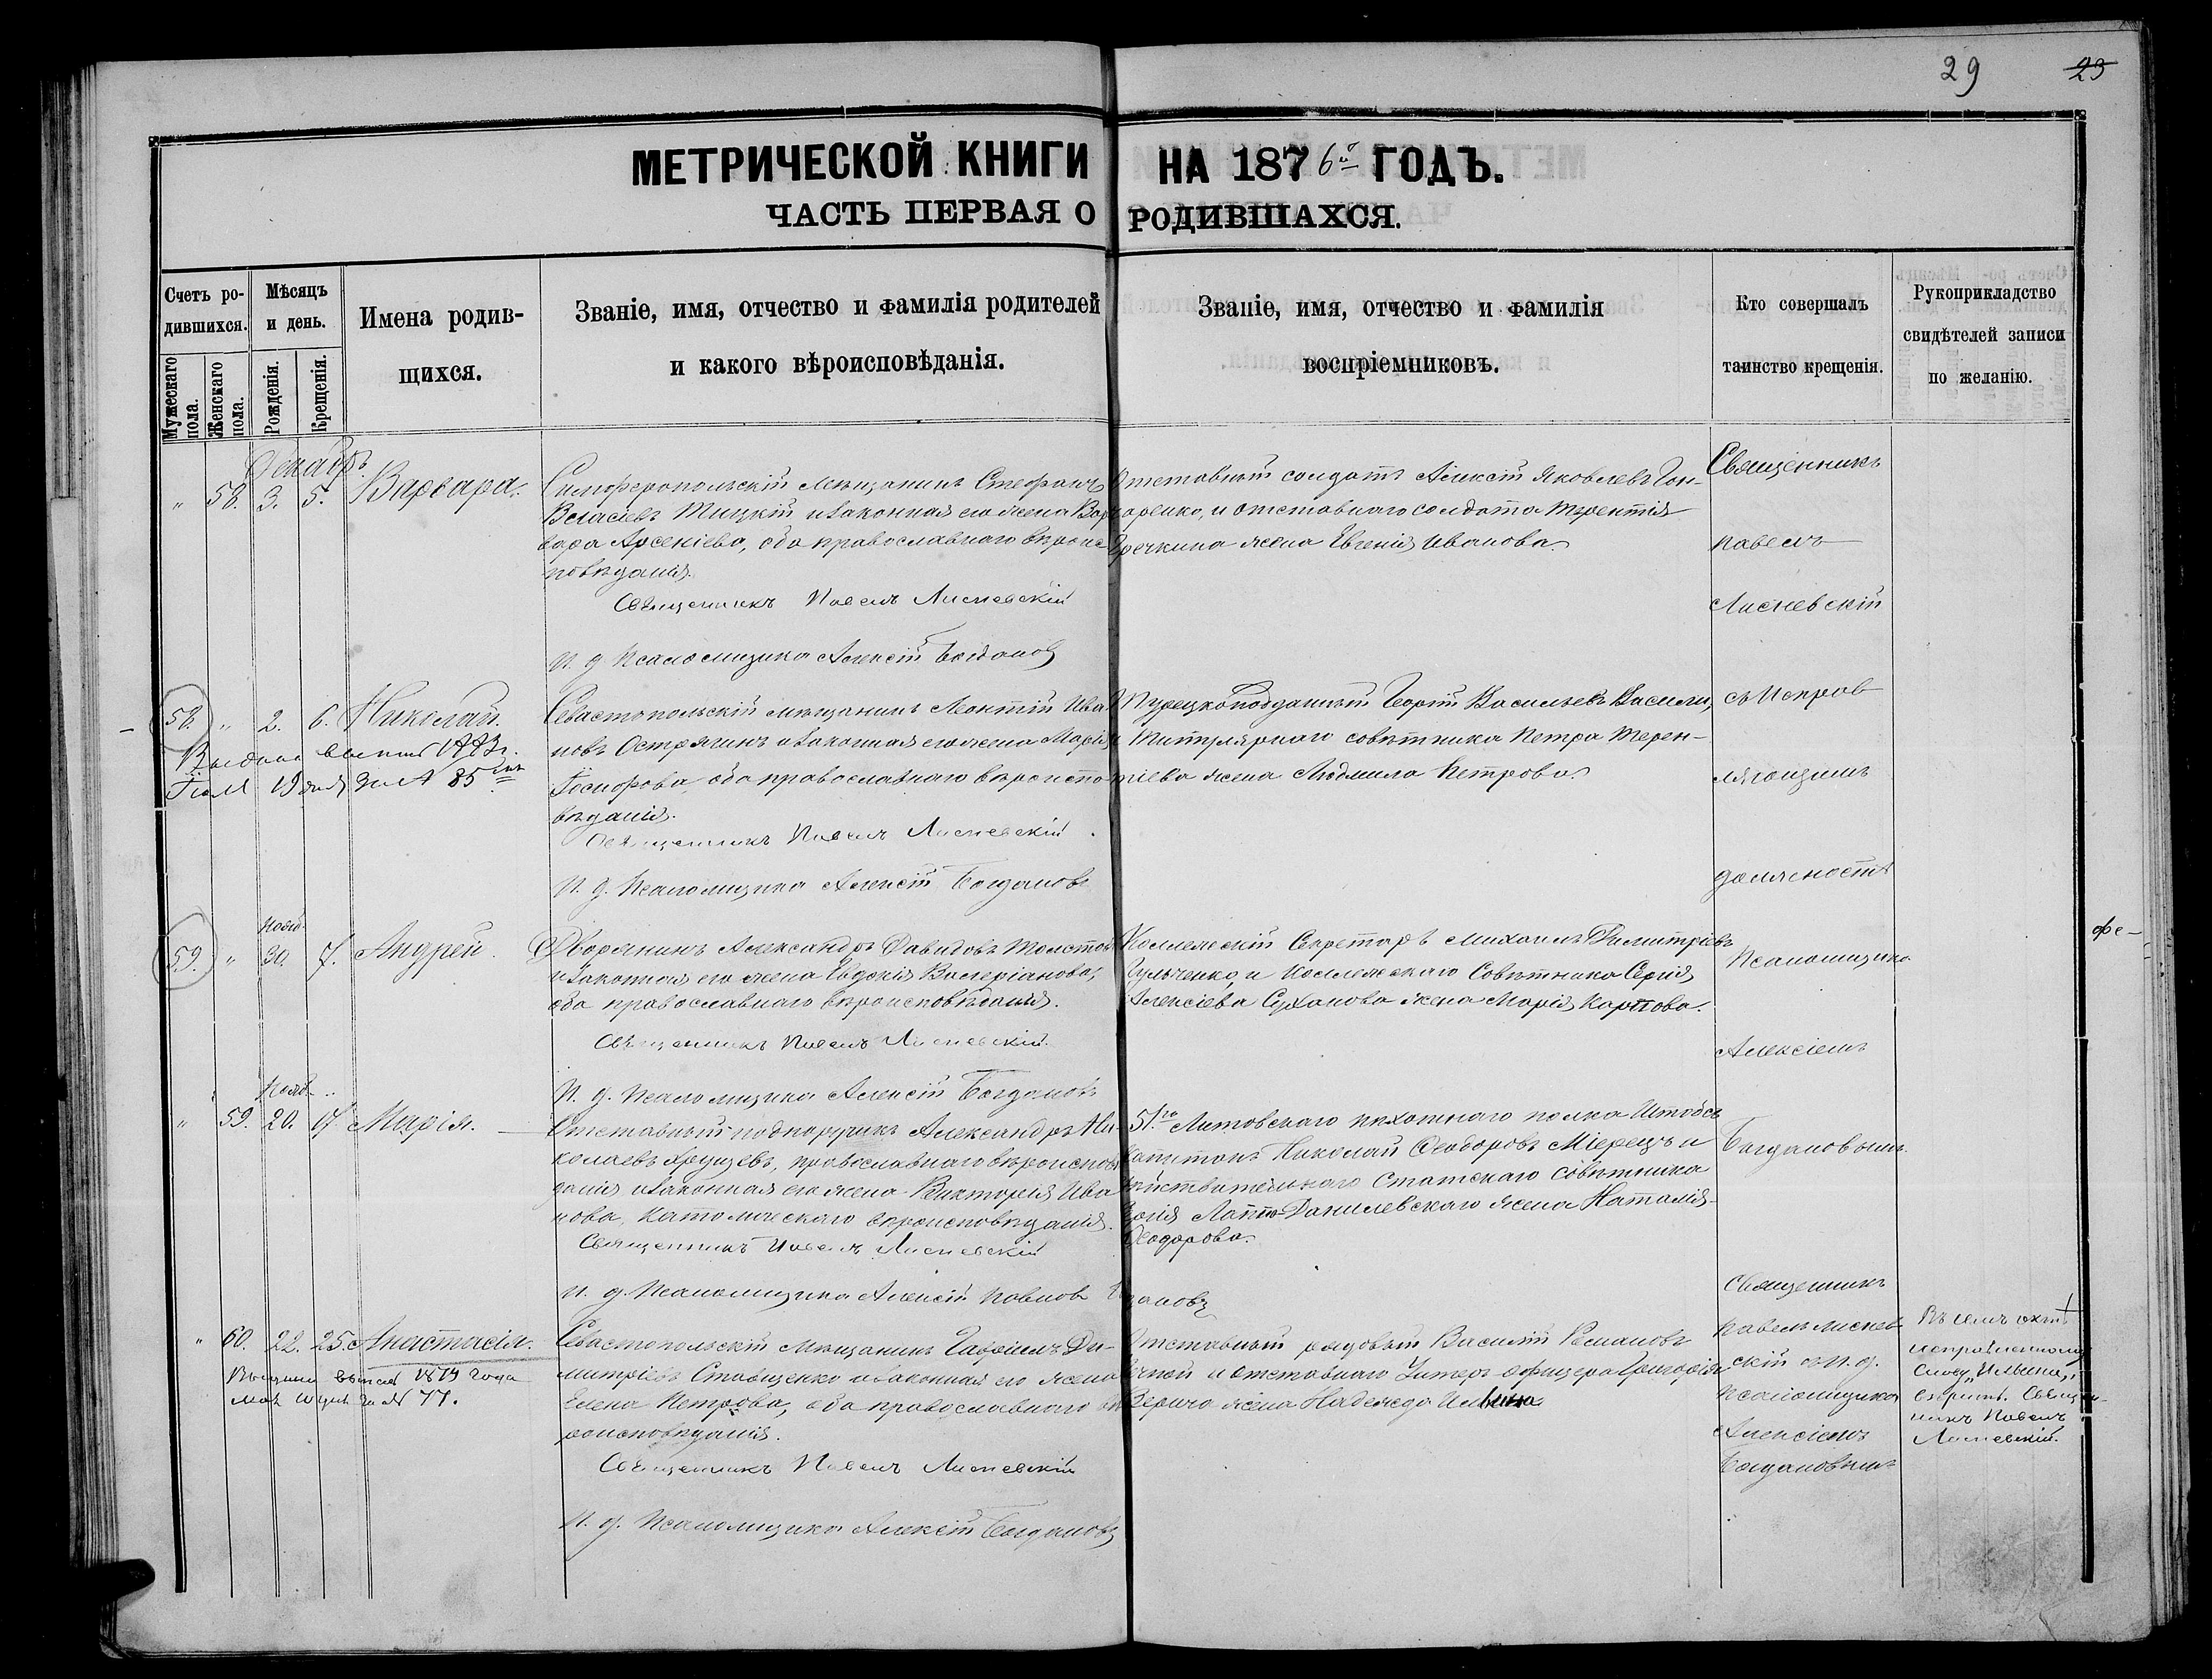 29 23
МЕТРИЧЕСКОЙ КНИГИ НА 1876й ГОДЪ.
ЧАСТЬ ПЕРВАЯ О РОДИВШАХСЯ.
Счетъ ро-
дившихся.
Мужескаго пола.
Женскаго пола.
Мѣсяцъ
и день.
Рожденія.
Крещенія.
Имена родив-
шихся.
Званіе, имя, отчество и фамилія родителей
и какого вѣроисповѣданія.
Званіе, имя, отчество и фамилія
воспріемниковъ.
Кто совершалъ
таинство крещенія.
Рукоприкладство
свидѣтелей записи
по желанію.
Декабрь
" 58. 3. 5. Варвара.
Симферопольскій мѣщанинъ Стефанъ
Власіевъ Тицкій и законная его жена Вар
вара Арсеніева, оба православнаго вѣроис
повѣданія.
Священникъ Павелъ Лисневскій
И. д. Псаломщика Алексій Богдановъ
Отставный солдатъ Алексій Яковлевъ Гон-
чаренко, и отставнаго солдата Терентія
Гречкина жена Евгенія Иванова.
Священникъ
Павелъ
Лисневскій
58. " 2. 6. Николай.
Выдана выпись 1883 г.
19 дня за № 85
Севастопольскій мѣщанинъ Леонтій Ива
новъ Острягинъ и законная его жена Марія
Іосифова, оба православнаго вѣроиспо
вѣданія.
Священникъ Павелъ Лисневскій
И. д. Псаломщика Алексій Богдановъ
Турецкоподданный Георгій Васильевъ Васили,
и Титулярнаго совѣтника Петра Терен-
тіева жена Людмила Петрова.
съ исправ
ляющимъ
должность
59. " Нояб. 30. 7. Андрей.
Дворянинъ Александръ Давидовъ Толстой
и законная его жена Евдокія Валеріанова,
оба православнаго вѣроисповѣданія.
Священникъ Павелъ Лисневскій.
И. д. Псаломщика Алексій Богдановъ
Коллежскій Секретарь Михаилъ Димитріевъ
Гульченко, и Коллежскаго Совѣтника Сергія
Алексіева Суханова жена Марія Карпова.
Псаломщика
Алексіемъ
фе-
" 59. Нояб. 20. 7. Марія.
Отставный подпоручикъ Александръ Ни-
колаевъ Хрущевъ, православнаго вѣроисповѣ
данія и законная его жена Викторія Ива
нова, католическаго вѣроисповѣданія.
Священникъ Павелъ Лисневскій
И. д. Псаломщика Алексій Павловъ Богдановъ
51го Литовскаго пѣхотнаго полка Штабсъ
Капитанъ Николай Ѳеодоровъ и
Дѣйствительнаго Статскаго совѣтника
Лаппо-Данилевскаго жена Наталія
Ѳеодорова.
Богдановымъ.
" 60. 22. 25. Анастасія.
Выдана выпись 1879 года
Мая за № 77.
Севастопольскій мѣщанинъ Гавріилъ Ди-
митріевъ Ставщенко и законная его жена
Елена Петрова, оба православнаго вѣ
роисповѣданія.
Священникъ Павелъ Лисневскій
И. д. Псаломщика Алексій Богдановъ
Отставный рядовый Василій Романовъ
и отставнаго Унтеръ-офицера Григорія
жена Надежда Ильина.
Священникъ
Павелъ Лиснев
скій съ И. д.
Псаломщика
Алексіемъ
Богдановымъ
Въ семъ актѣ
исправленному
слову „Ильина„
вѣрить. Священ-
никъ Павелъ
Лисневскій.